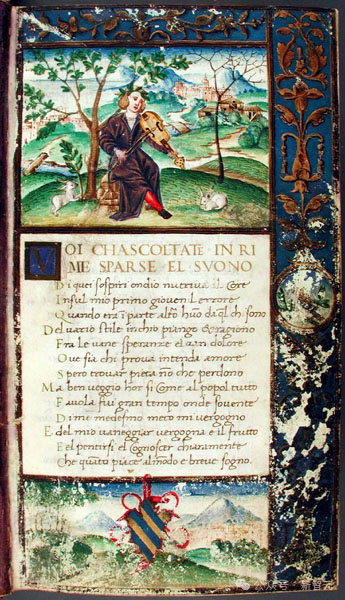 VOI CHASCOLTATE IN RI
ME SPARSE EL SVONO
Di quei sospiri ondio nutriva il Core
Insul mio primo giovenil errore
Quando era i parte altro huō da ql ch sono
Del vario stile inchio piango & ragiono
Fra le vane speranze el van dolore
Ove sia chi prova intenda amore
Spero trovar pieta nō che perdono
Ma ben veggio hor si come al popol tutto
Favola fui gran tempo onde sovente
Di me medesmo meco mi vergogno
E del mio vaneggiar vergogna e il frutto
E el pentirsi el cognoscer chiaramente
Che quāto piace al mōdo e breve sogno.